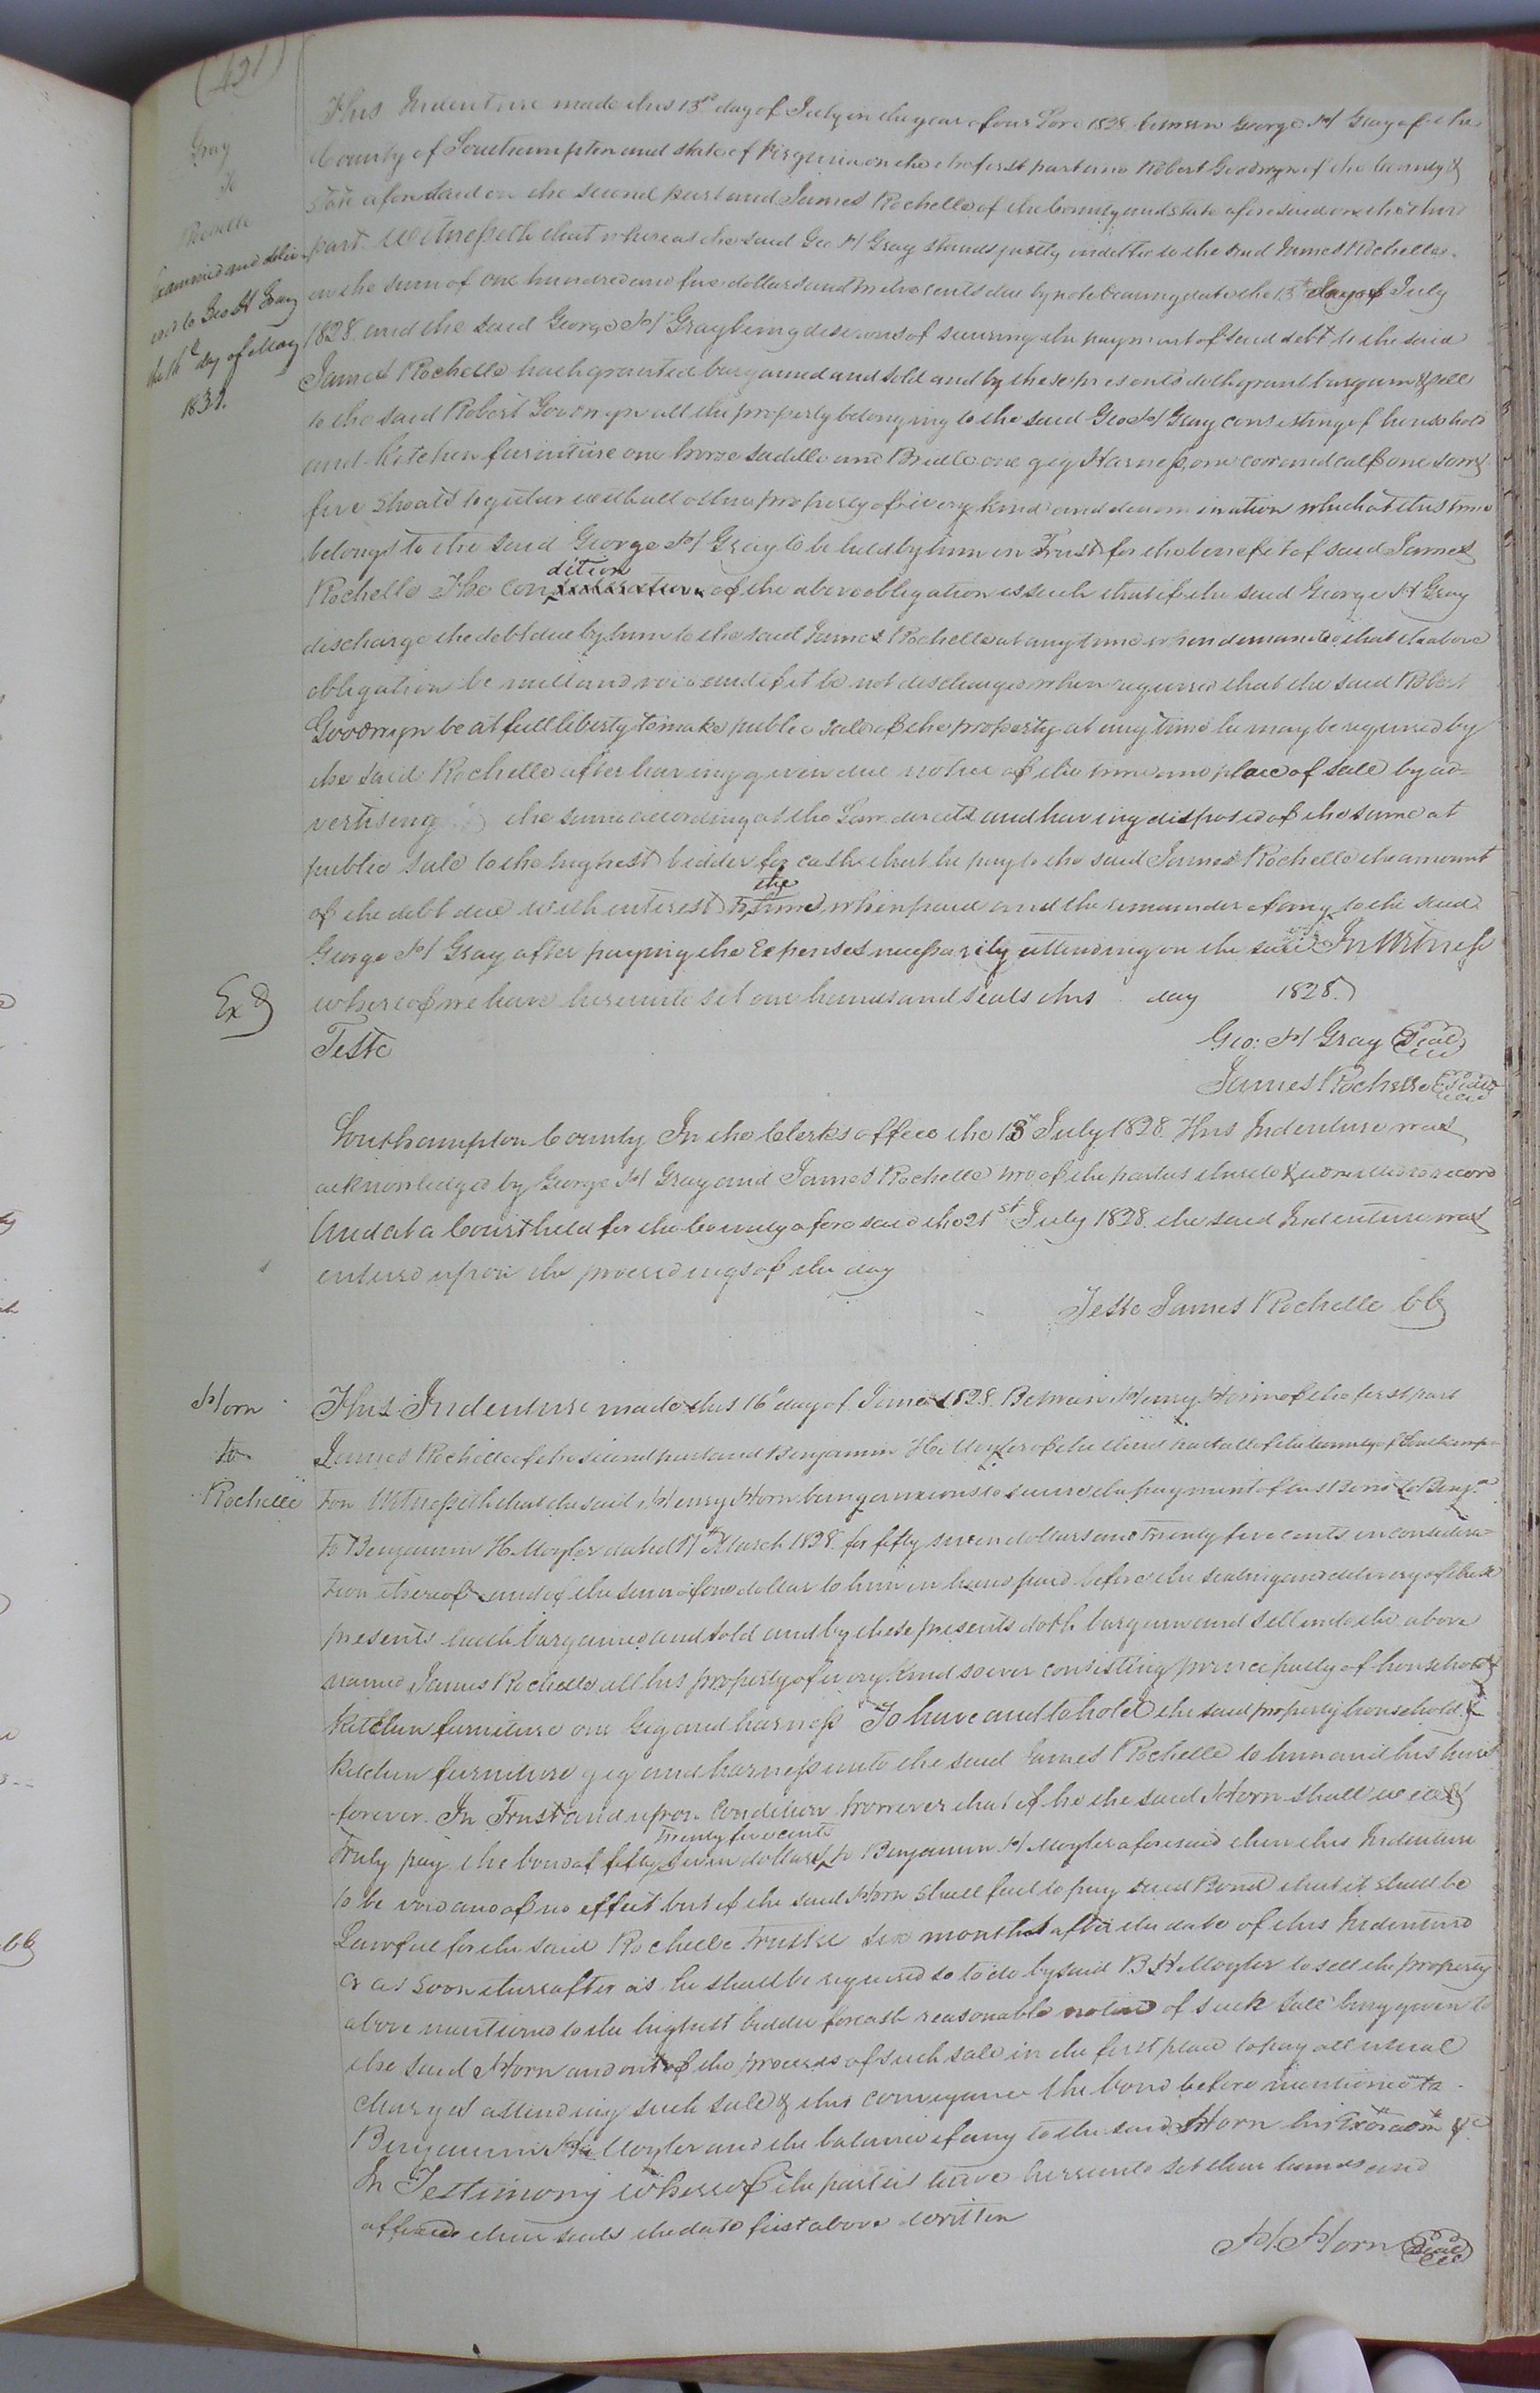 (421)
Gray
to
Rochelle
Examined and deliv-
ered to Geo H Gray
the 16th day of May
1831.
This Indenture made this 13th day of July in the year of our Lord 1828 between George H Gray of the
County of Southampton and state of Virginia on the the first part and Robert Goodwyn of the County &
State aforesaid on the second part and James Rochelle of the County and state aforesaid on the third
part. Witnesseth that whereas the said Geo H Gray stands justly indebted to the said James Rochelle
in the sum of one hundred and five dollars and twelve cents due by note bearing date the 13th day of July
1828 and the said George H Gray being desirous of securing the payment of said debt to the said
James Rochelle hath granted bargained and sold and by these presents doth grant bargain & sell
to the said Robert Goodwyn all the property belonging to the said Geo H Gray consisting of household
and kitchen furniture one horse saddle and Bridle one gig Harness, one cow and calf one sow &
five Shoats together with all other property of every kind and denomination which at this time
belongs to the said George H Gray to be held by him in Trust for the benefit of said James
Rochelle The condition of the above obligation is such that if the said George H Gray
discharge the debt due by him to the said James Rochelle at any time when demanded that the above
obligation be null and void and if it be not discharged when required that the said Robert
Goodwyn be at full liberty to make public sale of the property at any time he may be required by
the said Rochelle after having given due notice of the time and place of sale by ad=
vertising the same according as the Law directs and having disposed of the same at
public sale to the highest bidder for cash that he pay to the said James Rochelle the amount
of the debt due with interest to the time when paid and the remainder if any to the said
George H Gray after paying the Expenses necessarily attending on the sale In Witness
whereof we have hereunto set our hands and seals this day 1828.
Exd
Teste
Geo: H Gray Seal
James Rochelle Seal
Southampton County In the Clerks office the 13th July 1828 This Indenture was
acknowledged by George H Gray and James Rochelle two of the parties thereto & admitted to record
And at a Court held for the County aforesaid the 21st July 1828. the said Indenture was
entered upon the proceedings of the day
Teste James Rochelle CC
Horn
to
Rochelle
This Indenture made this 16th day of June 1828 Between Henry Horn of the first part
James Rochelle of the second part and Benjamin H Moyler of the third part all of the County of Southamp-
ton Witnesseth that the said Henry Horn being anxious to secure the payment of his Bond to Benjn
to Benjamin H Moyler dated 17th March 1828 for fifty seven dollars and twenty five cents, in considera-
tion thereof and of the sum of one dollar to him in hand paid before the sealing and delivery of these
presents hath bargained and sold and by these presents doth bargain and sell unto the above
named James Rochelle all his property of every kind soever consisting principally of household &
kitchen furniture one Gig and harness To have and to hold the said property household &
kitchen furniture gig and harness unto the said James Rochelle to him and his heirs
forever. In Trust and upon Condition however that if he the said Horn shall well &
Truly pay the bond of fifty seven dollars twenty five cents to Benjamin H Moyler aforesaid then this Indenture
to be void and of no effect but if the said Horn shall fail to pay said Bond that it shall be
Lawful for the said Rochelle Trustee six months after the date of this Indenture
or as soon thereafter as he shall be required so to do by said B H Moyler to sell the property
above mentioned to the highest bidder for cash reasonable notice of such sale being given to
the said Horn and out of the proceeds of such sale in the first place to pay all usual
charges attending such sale & this conveyance the bond before mentioned to
Benjamin H Moyler and the balance if any to the said Horn his Exor adm &c
In Testimony whereof the parties have hereunto set their hands and
affixed their seals the date first above written
H. Horn Seal